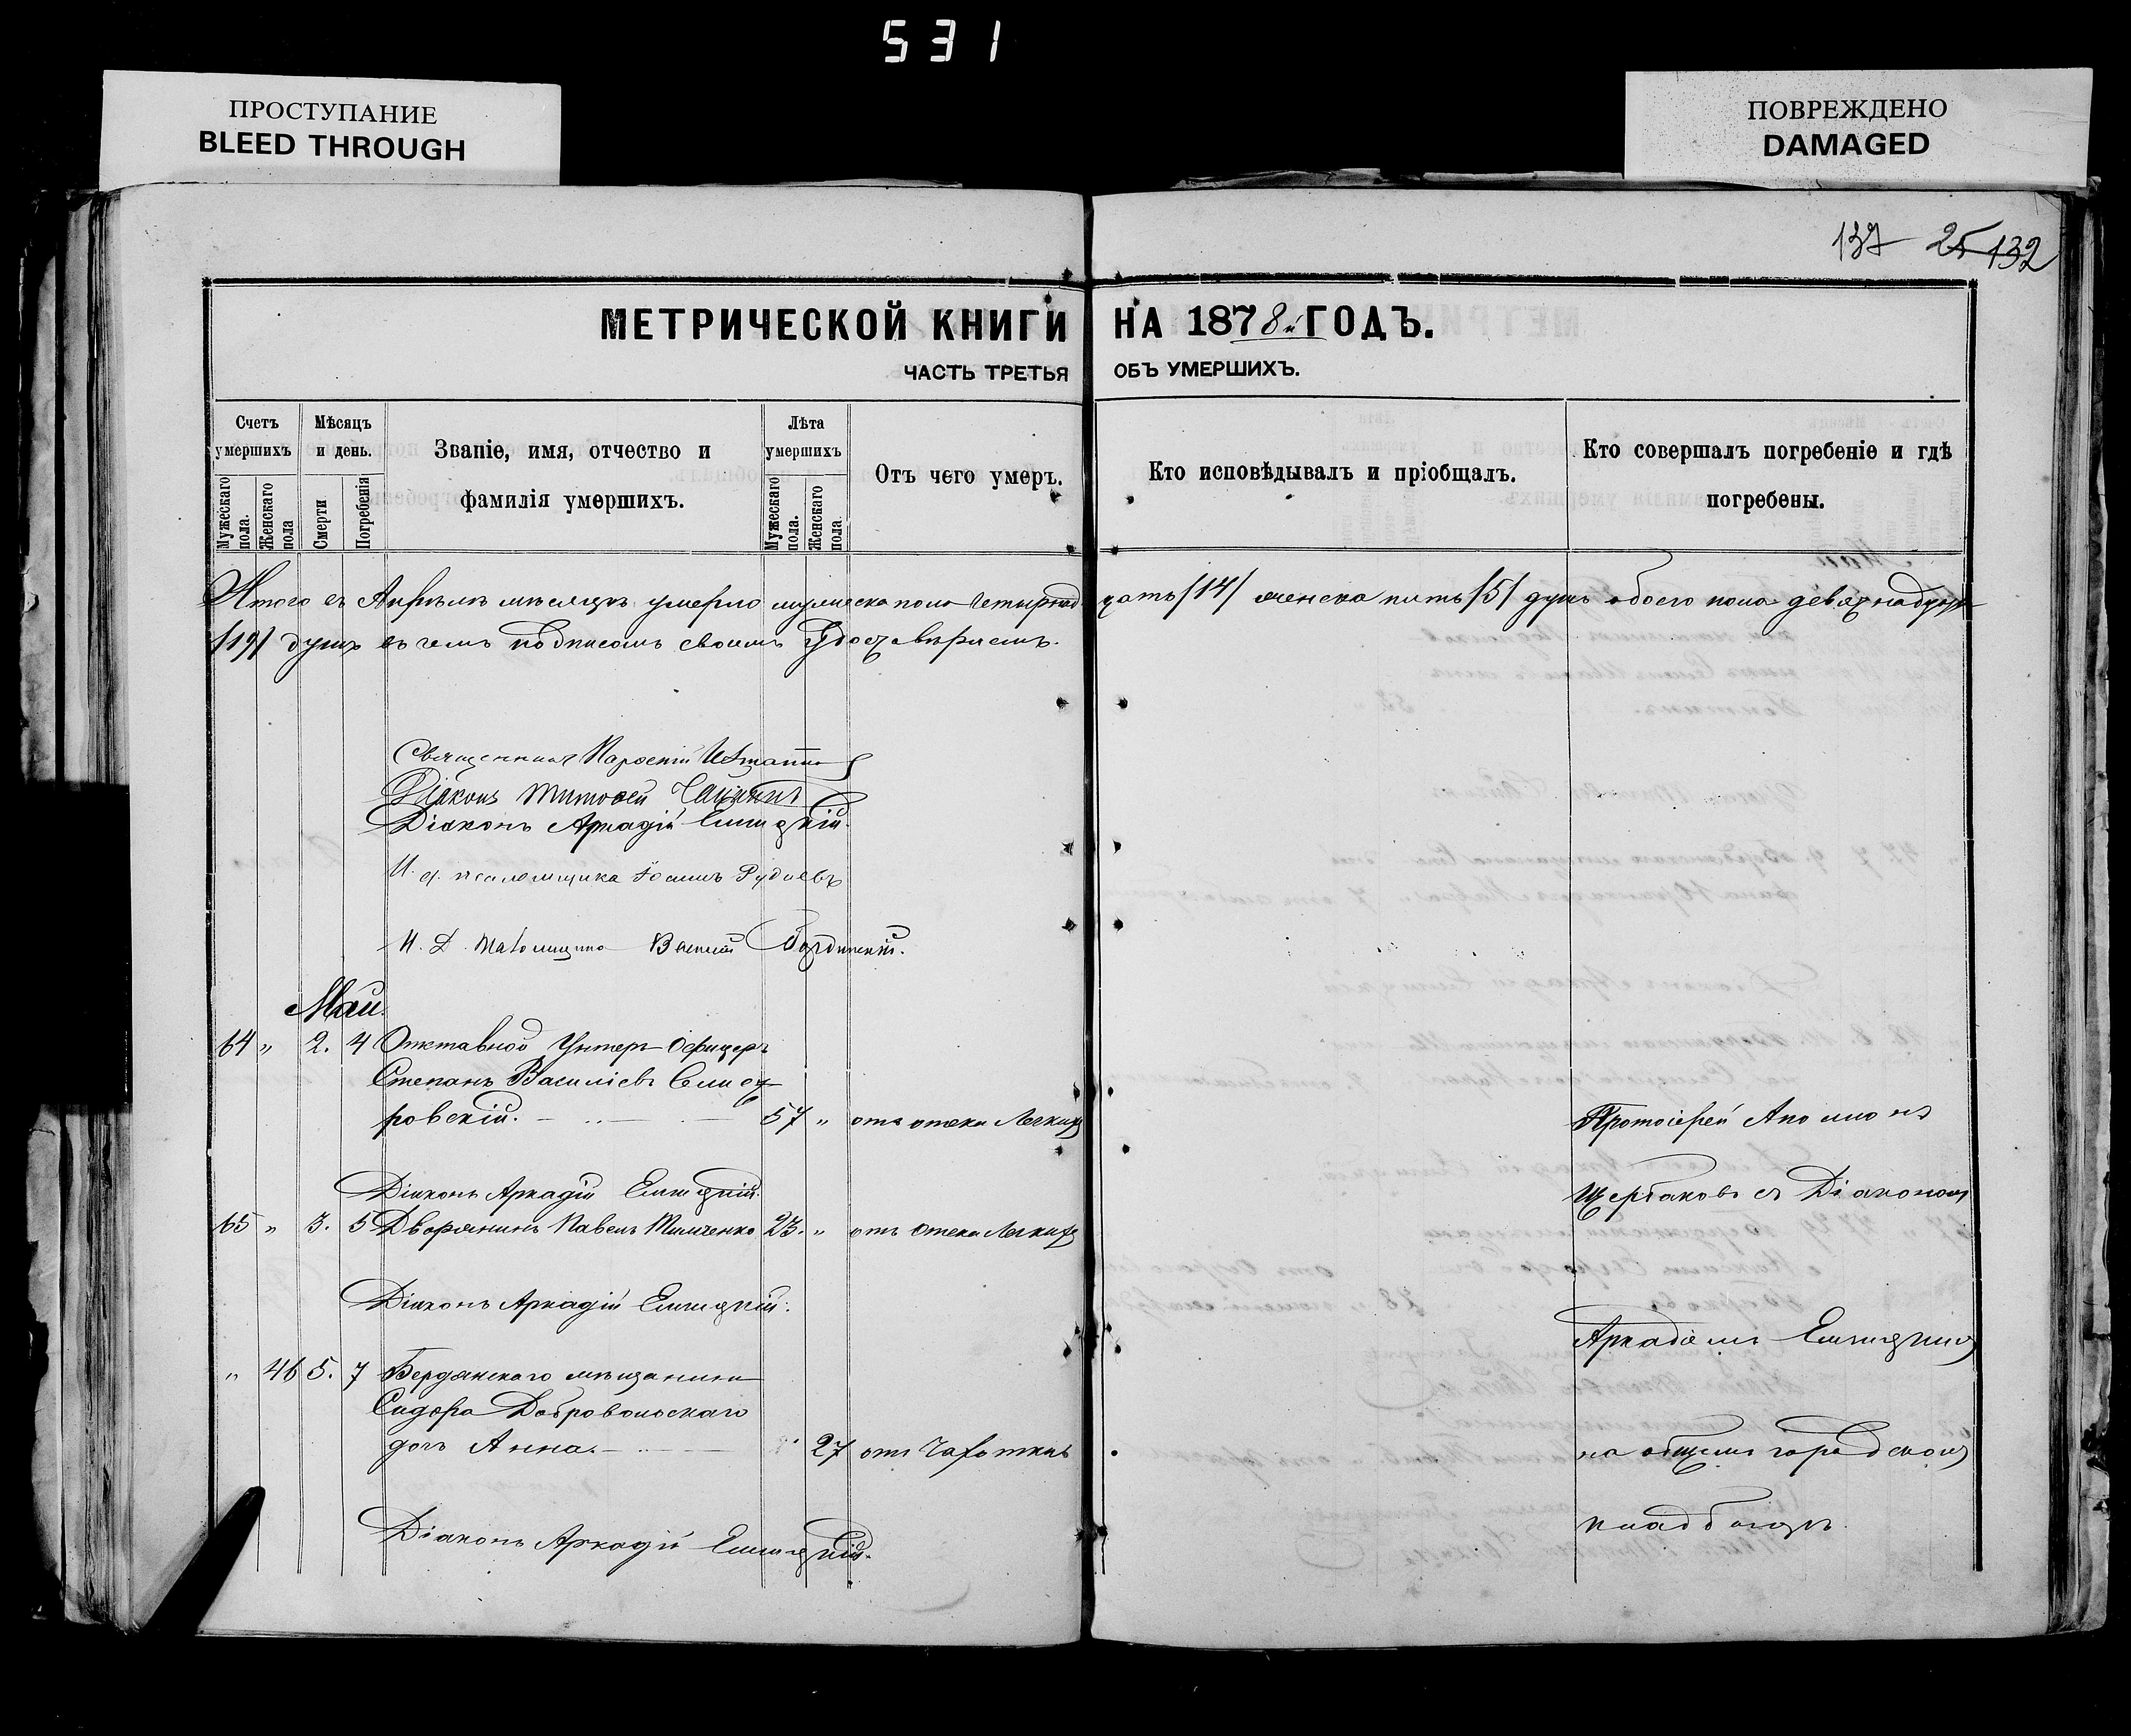 531
ПРОСТУПАНИЕ
BLEED THROUGH
ПОВРЕЖДЕНО
DAMAGED
137 25 132
МЕТРИЧЕСКОЙ КНИГИ НА 1878й ГОДЪ.
ЧАСТЬ ТРЕТЬЯ ОБЪ УМЕРШИХЪ.
Счетъ умершихъ
Мужескаго пола.
Женскаго пола
Мѣсяцъ и день.
Смерти
Погребенія
Званіе, имя, отчество и
фамилія умершихъ.
Лѣта умершихъ
Мужескаго пола.
Женскаго пола.
Отъ чего умеръ.
Кто исповѣдывалъ и пріобщалъ.
Кто совершалъ погребеніе и гдѣ
погребены.
Итого въ Апрѣлѣ мѣсяцѣ умерло мужеска пола четырнадцать /14/ женска пять /5/ душъ обоего пола девятнадцать
/19/ душъ въ чемъ подписомъ своимъ удостовѣряемъ.
Священник
Діаконъ Тимофей
Діаконъ Аркадій
И. д. псаломщика Іоаннъ Рудневъ
И. Д. Василій
Май.
64 " 2. 4 Отставной Унтеръ-Офицеръ
Степанъ Василіевъ
ровскій. 57 " отъ отека легкихъ
Діаконъ Аркадій
65 " 3. 5 Дворянинъ Павелъ Тимченко 23. " отъ отека легкихъ
Діаконъ Аркадій
" 46 5. 7 Бердянскаго мѣщанина
Сидора Добровольскаго
дочь Анна. 27 отъ чахотки
Діаконъ Аркадій
Протоіерей
Щербаковъ съ Діакономъ
Аркадіемъ
на общемъ городскомъ
кладбищѣ.